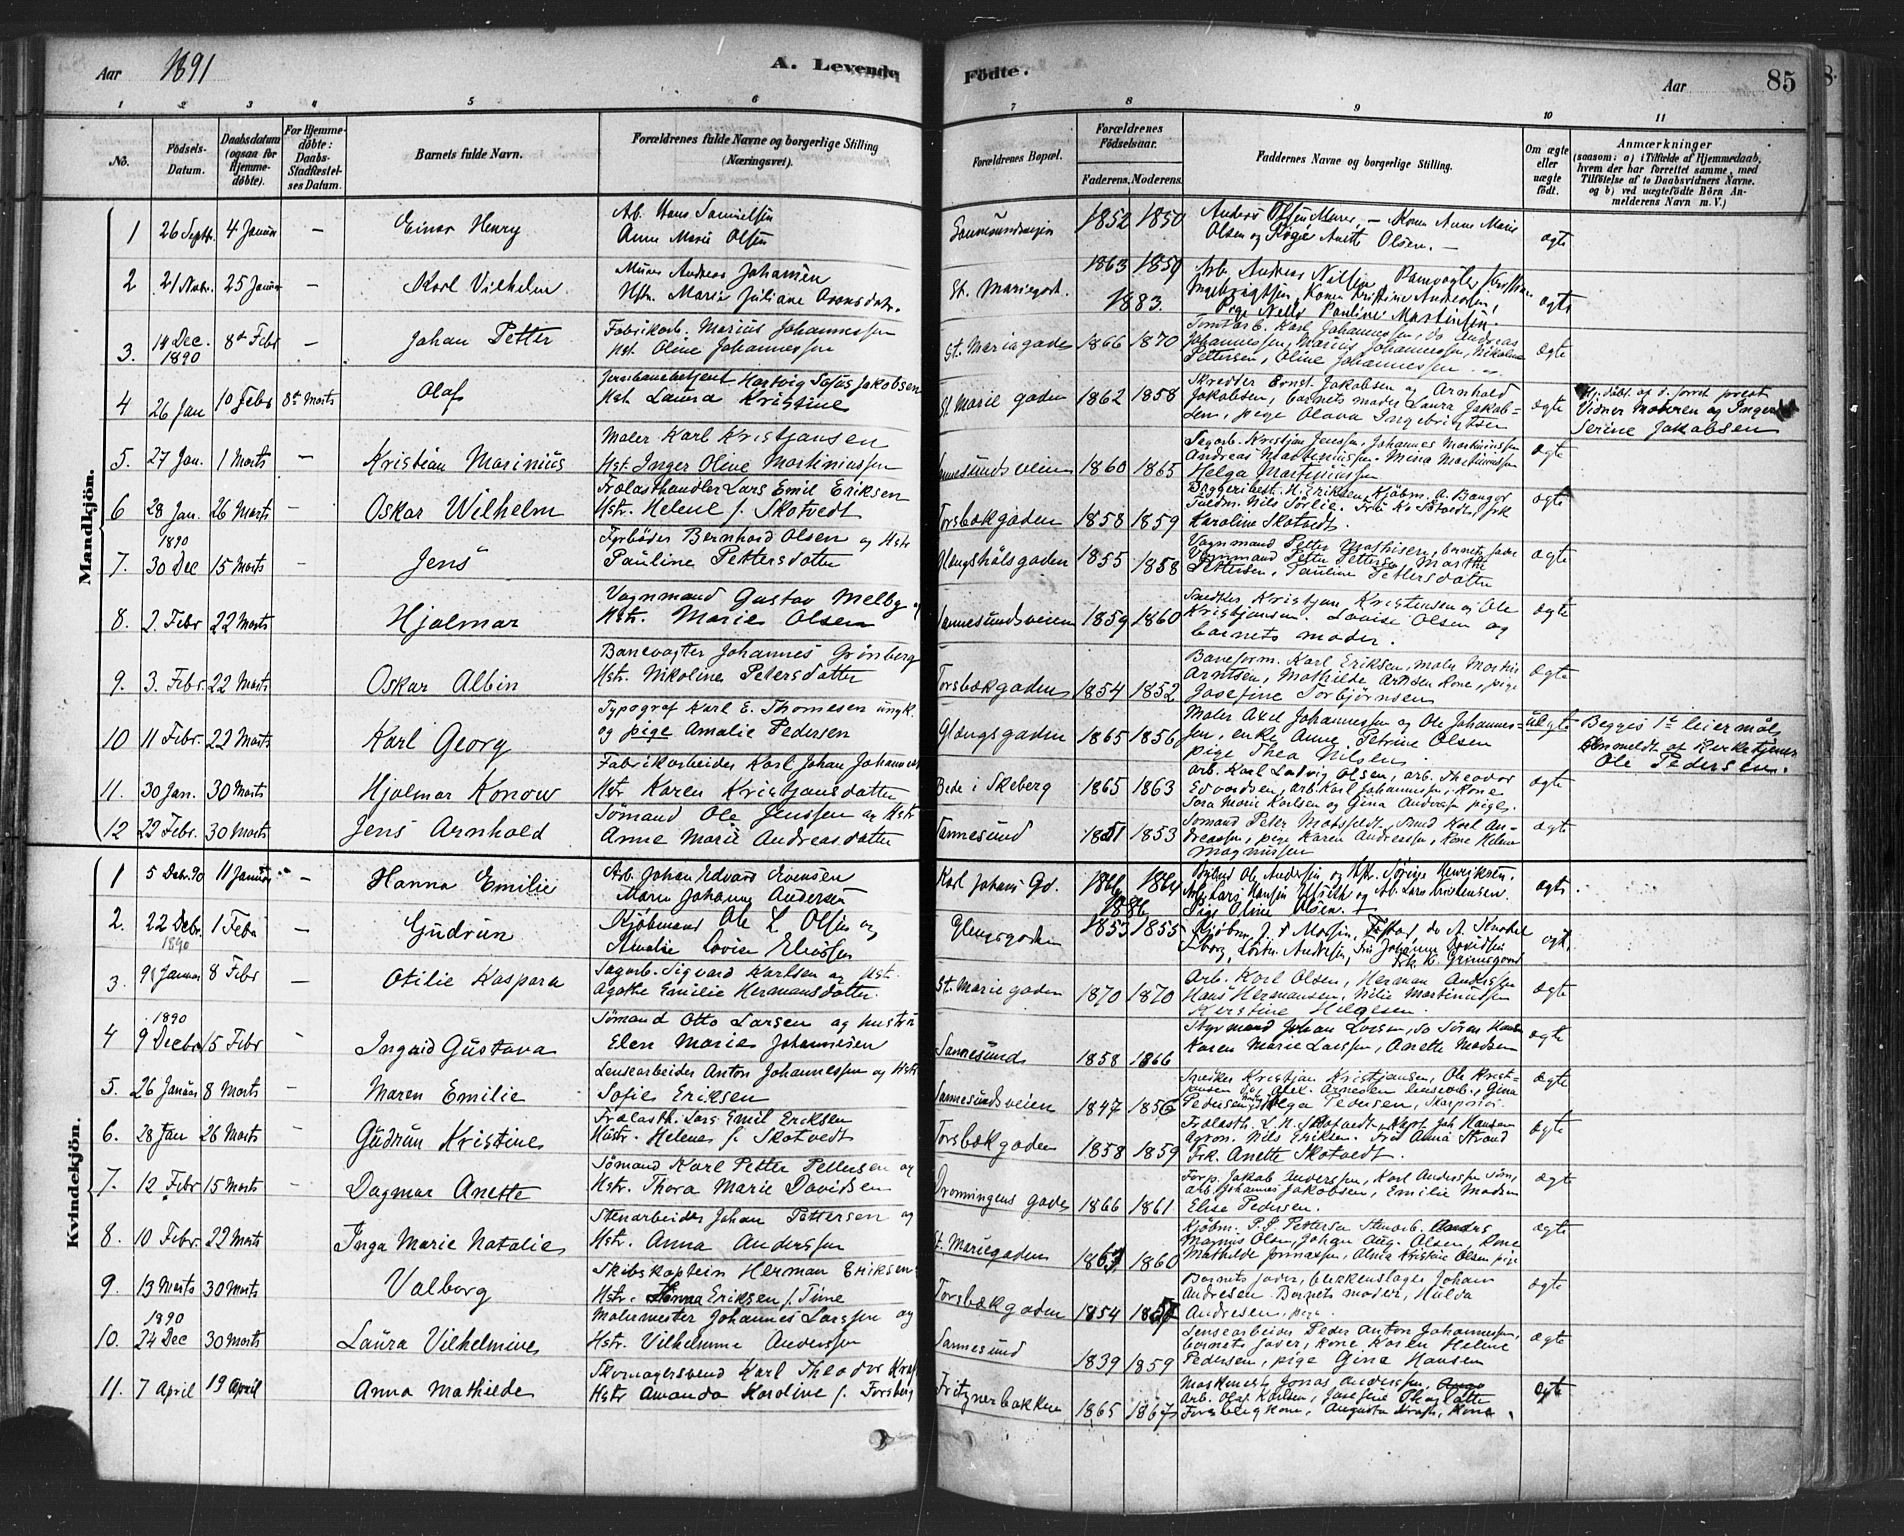 Aar 1891
A. Levende Födte.
Aar 85
1 2 3 4 5 6 7 8 9 10 11
No.
Födsels-Datum.
Daabsdatum (ogsaa for Hjemme-döbte).
For Hjemme-döbte: Daabs-Stadfæstel-ses Datum.
Barnets fulde Navn.
Forældrenes fulde Navne og borgerlige Stilling (Næringsvei).
Forældrenes Bopæl.
Forældrenes Födselsaar.
Faderens. Moderens.
Faddernes Navne og borgerlige Stilling.
Om ægte eller uægte födt.
Anmærkninger
(saasom: a) i Tilfælde af Hjemmedaab, hvem der har forrettet samme, med Tilföielse af to Daabsvidners Navne, og b) ved uægtefödte Börn An-melderens Navn m. V.)
Mandkjön.
1 26 Septb. 4 Januar – Einar Henry
Arb. Hans Samuelsen
Anne Marie Olsen
1852 1850
Olsen og Pige Anette Olsen. –
ægte
2 21 Novbr. 25 Januar – Karl Vilhelm
Murer Andreas Johansen
Hstr. Marie Juliane Aronsdatr.
St. Mariegad. 1863 1859
1883.
Arb. Andreas Nilsen Banevogter Kristian
Ingebrigtsen, Konen Kristine Andersen,
Pige Nelly Pauline Martinsen.
ægte
3. 14 Dec. 1890 8de Febr – Johan Petter
Fabrikarb. Marius Johannessen
Hst. Oline Johannessen
St. Mariegade 1866 1870
Tomtarb. Karl Johannessen, do Andreas
Johannessen, Marius Johannessen, Nikoline
Pettersen, Oline Johannessen
ægte
4 26 Jan 10 Febr 8de Marts Olaf
Jernbanebetjent Hartvig Sofus Jakobsen
Hst. Laura Kristine
St. Marie gaden 1862 1858
Skrædder Ernst Jakobsen og Arnhold
Jakobsen, barnets moder Laura Jakob-
sen, pige Olava Ingebrigtsen
ægte
Hj. döbt af d. forret. prest
Vidner Moderen og Inger
Serine Jakobsen
5. 27 Jan. 1 Marts – Kristian Marinius
Maler Karl Kristjansen
Hst. Inger Olive Martiniussen
Sannesundsveien 1860 1865
Sagarb. Kristjan Jenssen, Johannes Martiniussen
Andreas Martiniussen. Mina Martiniussen
Helga Martiniussen
ægte
6 28 Jan. 26 Marts – Oskar Wilhelm
Trælasthandler Lars Emil Eriksen
Hstr. Helene f. Skotvedt
Torsbækgaden 1858 1859
Byggeribest. H. Eriksen, Kjöbm. A. Bangor
Karoline Skotvedt.
ægte
7. 1890 30 Dec 15 Marts – Jens
Fyrböder Bernhard Olsen og Hstr
Pauline Pettersdatter
Glengshölsgaden 1855 1858
Vognmand Petter Mathisen, barnets fader
Vognmand Petter Pettersen Marthe
Pettersen, Pauline Pettersdatter
ægte
8. 2. Febr 22 Marts Hjalmar
Vognmand Gustav Melby og
Hstr. Marie Olsen
Sannesundsveien 1859 1860
Snedker Kristjan Kristensen og Ole
Kristjansen. Lovise Olsen og
barnets moder.
ægte
9. 3. Febr. 22 Marts Oskar Albin
Banevogter Johannes Grönberg
Hstr. Nikoline Petersdatter
Torsbækgaden 1854 1852
Baneform. Karl Eriksen, maler Martin
Arntsen, Mathilde Arntsen Kone, pige
Josefine Torbjörnsen
ægte
10 11 Febr. 22 Marts Karl Georg
Typograf Karl E. Thomesen ungk.
og pige Amalie Pedersen
Glengsgaden 1865 1856
Maler Axel Johannessen og Ole Johannes-
sen, enke Anne Petrine Olsen
pige Thea Nilsen.
uægte
Begges 1te leiermål
Anmeldt af Kirketjener
Ole Pedersen.
11. 30 Jan. 30 Marts Hjalmar Konow
Fabrikarbeider Karl Johan Johannes
Hstr Karen Kristjansdatter
Bede i Skeberg 1865 1863
arb. Karl Ludvig Olsen, arb. Theodor
Edvardsen, arb. Karl Johannessen, Kone
Sora Marie Karlsen og Gina Andersen piger
ægte
12 22 Febr. 30 Marts Jens Arnhold
Sömand Ole Jenssen og Hstr
Anne Marie Andreasdatter
Sannesund 1851 1853
Sömand Peter Matsfeldt, Smed Karl An-
dreassen, pige Karen Andreassen, Kone Helene
Magnussen
ægte
Kvindekjön.
1 5 Decbr. 90 11 Januar – Hanna Emilie
Arb. Johan Edvard Evensen
Maren Johanne Andersen
Karl Johans Gd. 1866 1864
1886
Bybud Ole Andersen og Hstr. Sörine Henriksen.
Pige Oline Olsen.
ægte
2. 22 Debr. 1890 1 Feba – Gudrun
Kjöbmand Ole L. Olsen og
Amalie Lovise Eliassen
Glengsgaden 1853 1855
Frk. K. Grimsgaard
ægt.
3. 9 Januar 8 Febr – Otilie Kaspara
Sagarb. Sigvard Karlsen og Hst.
Agathe Emilie Hermansdatter.
St. Mariegaden 1870 1870
Arb. Karl Olsen, Herman Andersen
Hans Hermansen, Nilie Martiniussen
Kerstine Helgesen.
ægte
4 1890 9 Decbr 15 Febr – Ingrid Gustava
Sömand Otto Larsen og hustru
Elen Marie Johannesen
Sannesund 1858 1866
Styrmand Johan Larsen, do Sören Hansen
Karen Marie Larssen, Anette Madsen
ægte
5. 26 Januar 8 Marts – Maren Emilie
Lensearbeider Anton Johannessen og Hstr
Sofie Eriksen
Sannesundsveien 1847 1856
Snedker Kristjan Kristjansen, Ole Krist-
jansen og Alex. Arnesen lensearb., Gina
Pedersen, Helga Pedersen, Skarpsno
ægte
6. 28 Jan 26 Marts – Gudrun Kristine
Trælasth. Lars Emil Eriksen
Hustr. Helene f. Skotvedt
Torsbækgaden 1858 1859
Trælasth. L. H. Skotvedt, Kapt. Joh Hansen
Agron. Nils Eriksen. Frö Anna Strand
Frk. Anette Skotvedt.
ægte
7. 12 Febr 15 Marts – Dagmar Anette
Sömand Karl Petter Pettersen og
Hstr. Thora Marie Davidsen
Dronningens gade 1866 1861
Forp. Jakob Anderssen, Karl Anderssen söm,
arb. Johannes Jakobsen, Emilie Madsen
Elise Pedersen.
ægte
8. 10 Febr. 22 Marts Inga Marie Natalie
Stenarbeider Johan Pettersen og
Hstr. Anna Anderssen
St. Mariegaden 1863 1860
Kjöbm. P. J. Pettersen Stenarb. Anders
Magnus Olsen, Johan Aug. Olsen, Kone
Mathilde Jonnassen, Alma Kristine Olsen pige
ægte
9. 13 Marts 30 Marts Valborg
Skibskaptein Herman Eriksen
Hstr. Hanna Eriksen f. Time
Torsbækgaden 1854
Barnets fader, blikkenslager Johan
Andresen. Barnets moder, Hulda
Andresen, pige
ægte
10. 1890 24 Dec 30 Marts Laura Vilhelmine
Malermester Johannes Larssen og
Hstr. Vilhelmine Anderssen
Sannesund 1839 1859
Lensearbeider Peder Anton Johannessen,
barnets fader, kone Karen Helene
Pedersen, pige Gina Hansen
ægte
11. 7 April 19 April Anna Mathilde
Skomagersvend Karl Theodor Kraft
Hstr Amanda Karoline f. Forsberg
Fritznerbakken 1865 1867
Maskinest Jonas Anderssen,
Arb. Olaf Karlsen, Josefine Charlotte
Forsberg kone, Augusta Kraft, Kone
ægte